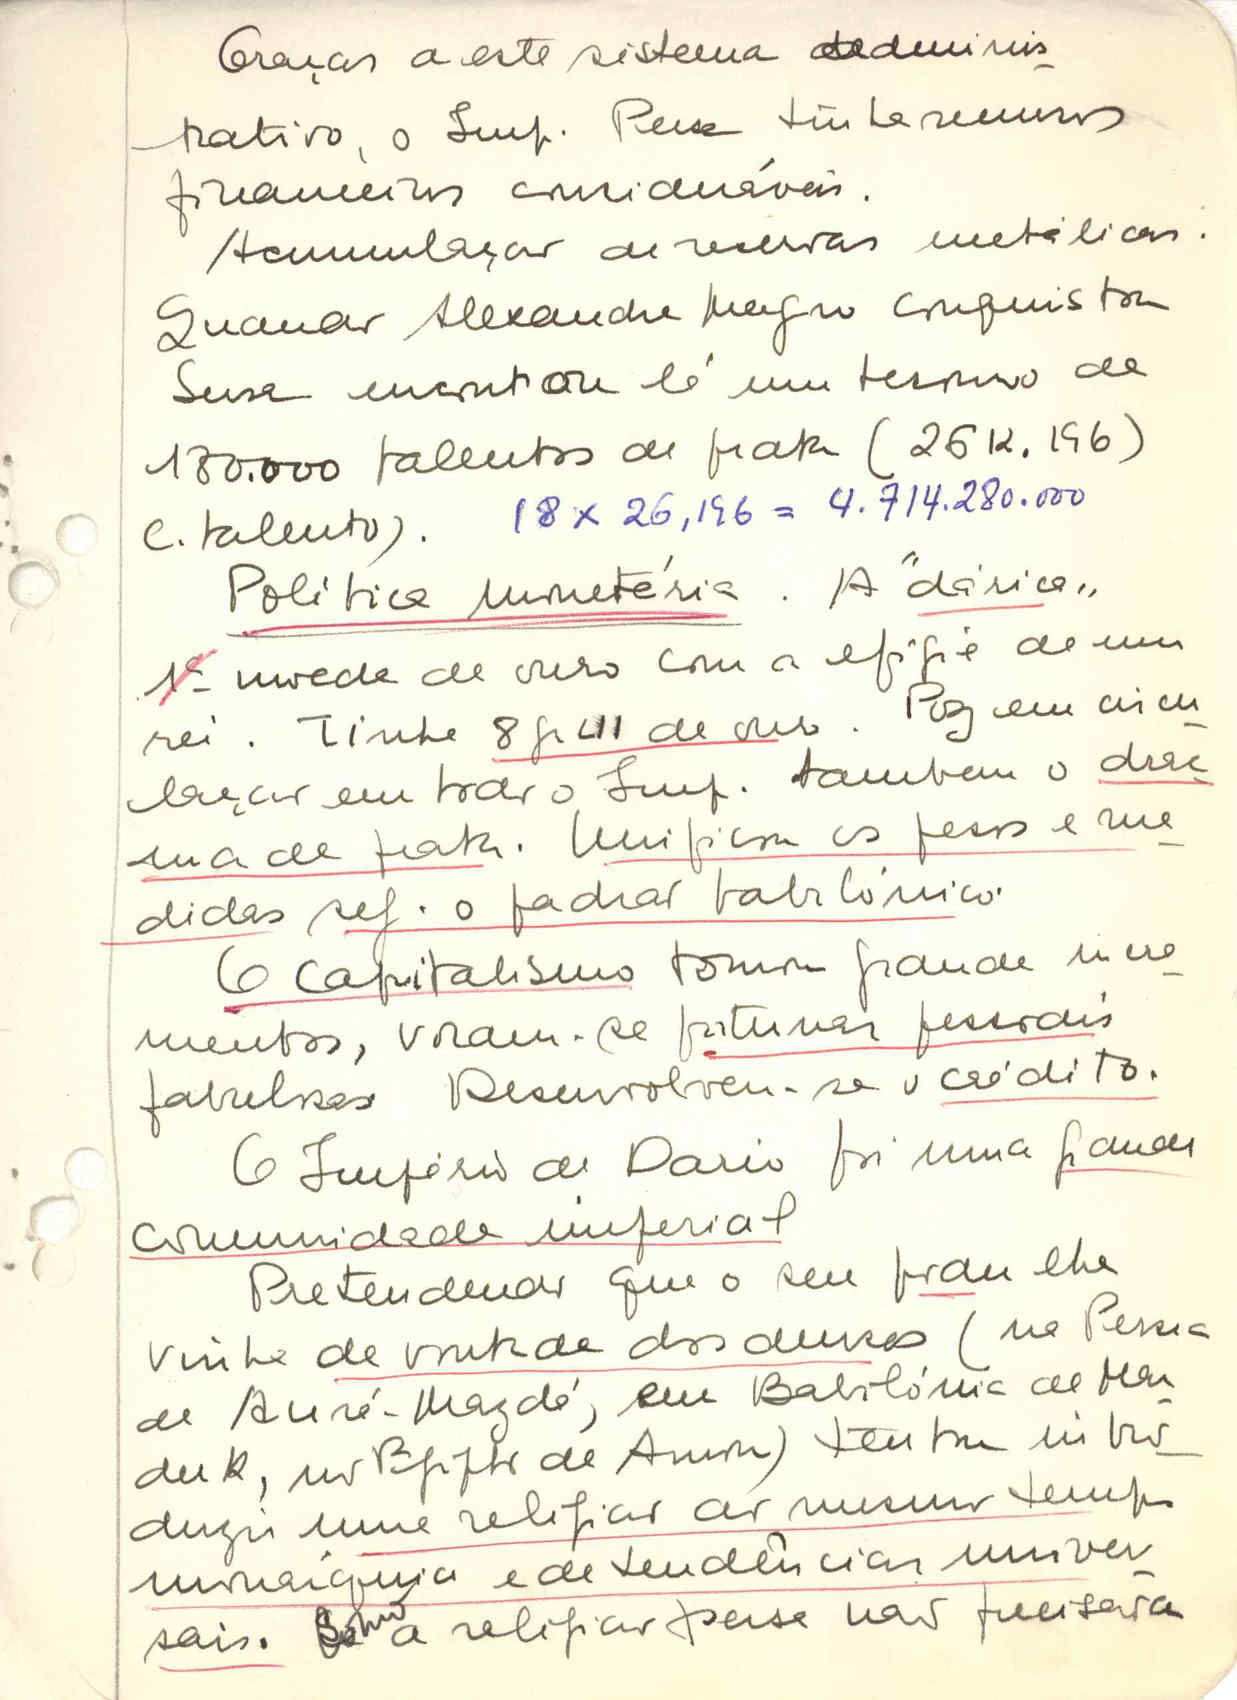 Graças a este sistema adminis-
trativo, o Imp. Persa tinha recursos
financeiros consideráveis.
Acumulação de reservas metálicas.
Quando Alexandre Magno conquistou
Susa encontrou lá um tesouro de
180.000 talentos de prata (26 K. 196)
c. talento). 18 x 26,196 = 4.714.280.000
Política monetária. A "dárica"
1ª moeda de ouro com a efígie de um
rei. Tinha 8 gr 411 de ouro. Poz em circu-
lação em todo o Imp. tambem o drac-
ma de prata. Unificou os pesos e me-
didas seg. o padrão babilónico.
O Capitalismo tomou grande incre-
mentos, viram-se fortunas pessoais
fabulosas Desenvolveu-se o crédito.
O Império de Dario foi uma grande
comunidade imperial
Pretendendo que o seu poder lhe
vinha de vontade dos deuses (na Persia
de Aurá-Mazdá, em Babilónia de Mar-
duk, no Egipto de Amon) tentou intro-
duzir uma religião ao mesmo tempo
monárquica e de tendências univer-
sais. Como a religião persa não precisava